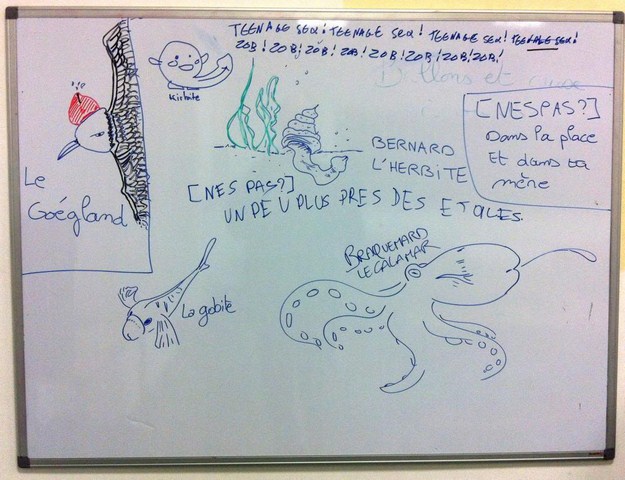 TEENAGE SEX! TEENAGE SEX! TEENAGE SEX! TEENAGE SEX!
ZOB! ZOB! ZOB! ZOB! ZOB! ZOB! ZOB! ZOB!
Kirbite
[NESPAS?]
Dans la place
Et dans ta
mère
BERNARD
L'HERBITE
Le
Goégland
[NES PAS?]
UN PEU PLUS PRES DES ETOILES
BRAQUEMARD
LE CALAMAR
La gobite